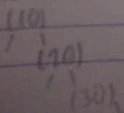 (10)
(20)
(30)